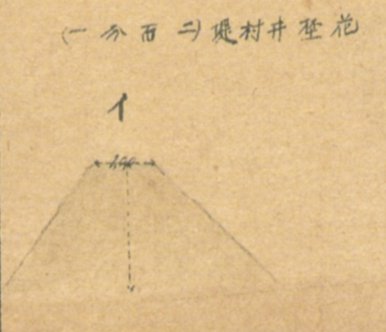 花埜井村堤(二百分一)
イ